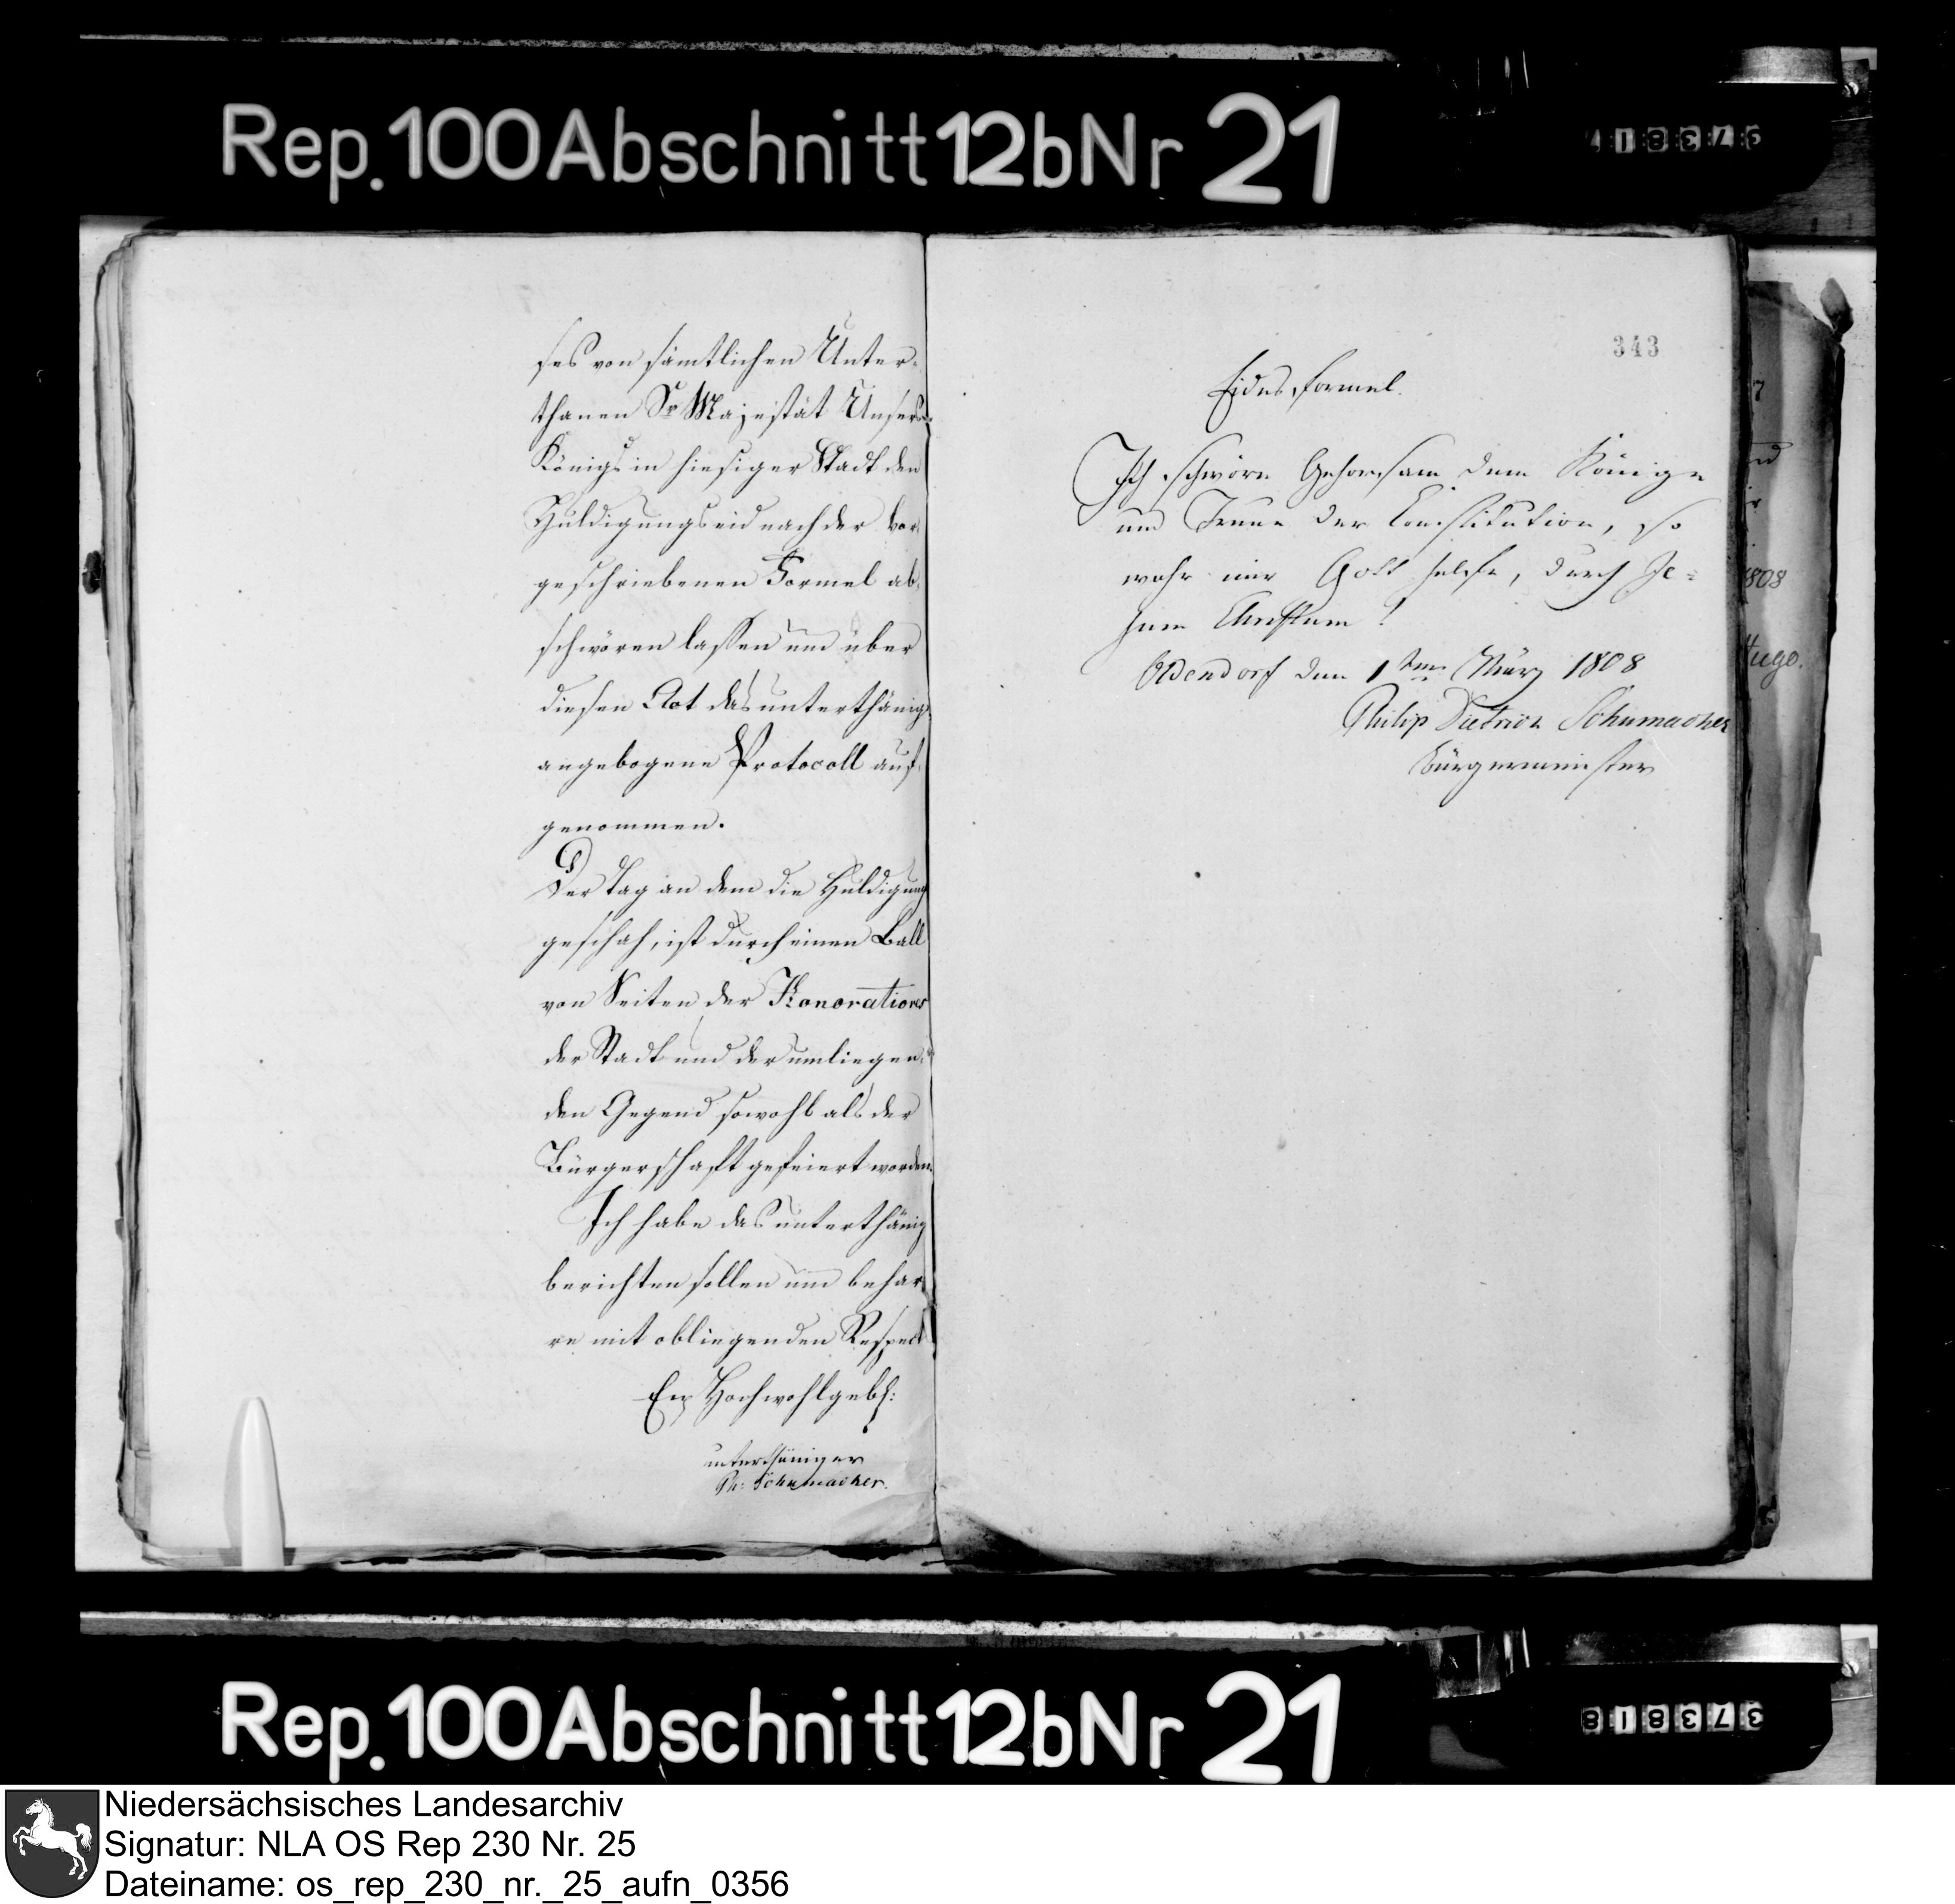 Rep. 100 Abschnitt 12b Nr 21
ses von sämtlichen Unter-
thanen Sr Majestät Unsers
Königs in hiesiger Stadt den
Huldigungseid nach der vor-
geschriebenen Formel ab-
schwören lassen und über
diesen Act das unterthänig
angebogene Protocoll auf-
genommen.
Der Tag an dem die Huldigung
geschah, ist durch einen Ball
von Seiten der Honoratiores
der Stadt und der umliegen-
den Gegend sowohl als der
Bürgerschaft gefeiert worden.
Ich habe das unterthänig
berichten sollen und behar-
re mit obliegenden Respect
Ew Hochwohlgeb:
unterthäniger
Ph: Schumacher.
343
Eides formel.
Ich schwöre Gehorsam dem Könige
und Treue der Constitution, so
wahr mir Gott helfe, durch Je=
sum Christum!
Oldendorf den 1ten März 1808
Philip Dietrich Schumacher
Bürgermeister
808
Hugo.
Rep. 100 Abschnitt 12b Nr 21
373818
Niedersächsisches Landesarchiv
Signatur: NLA OS Rep 230 Nr. 25
Dateiname: os_rep_230_nr._25_aufn_0356